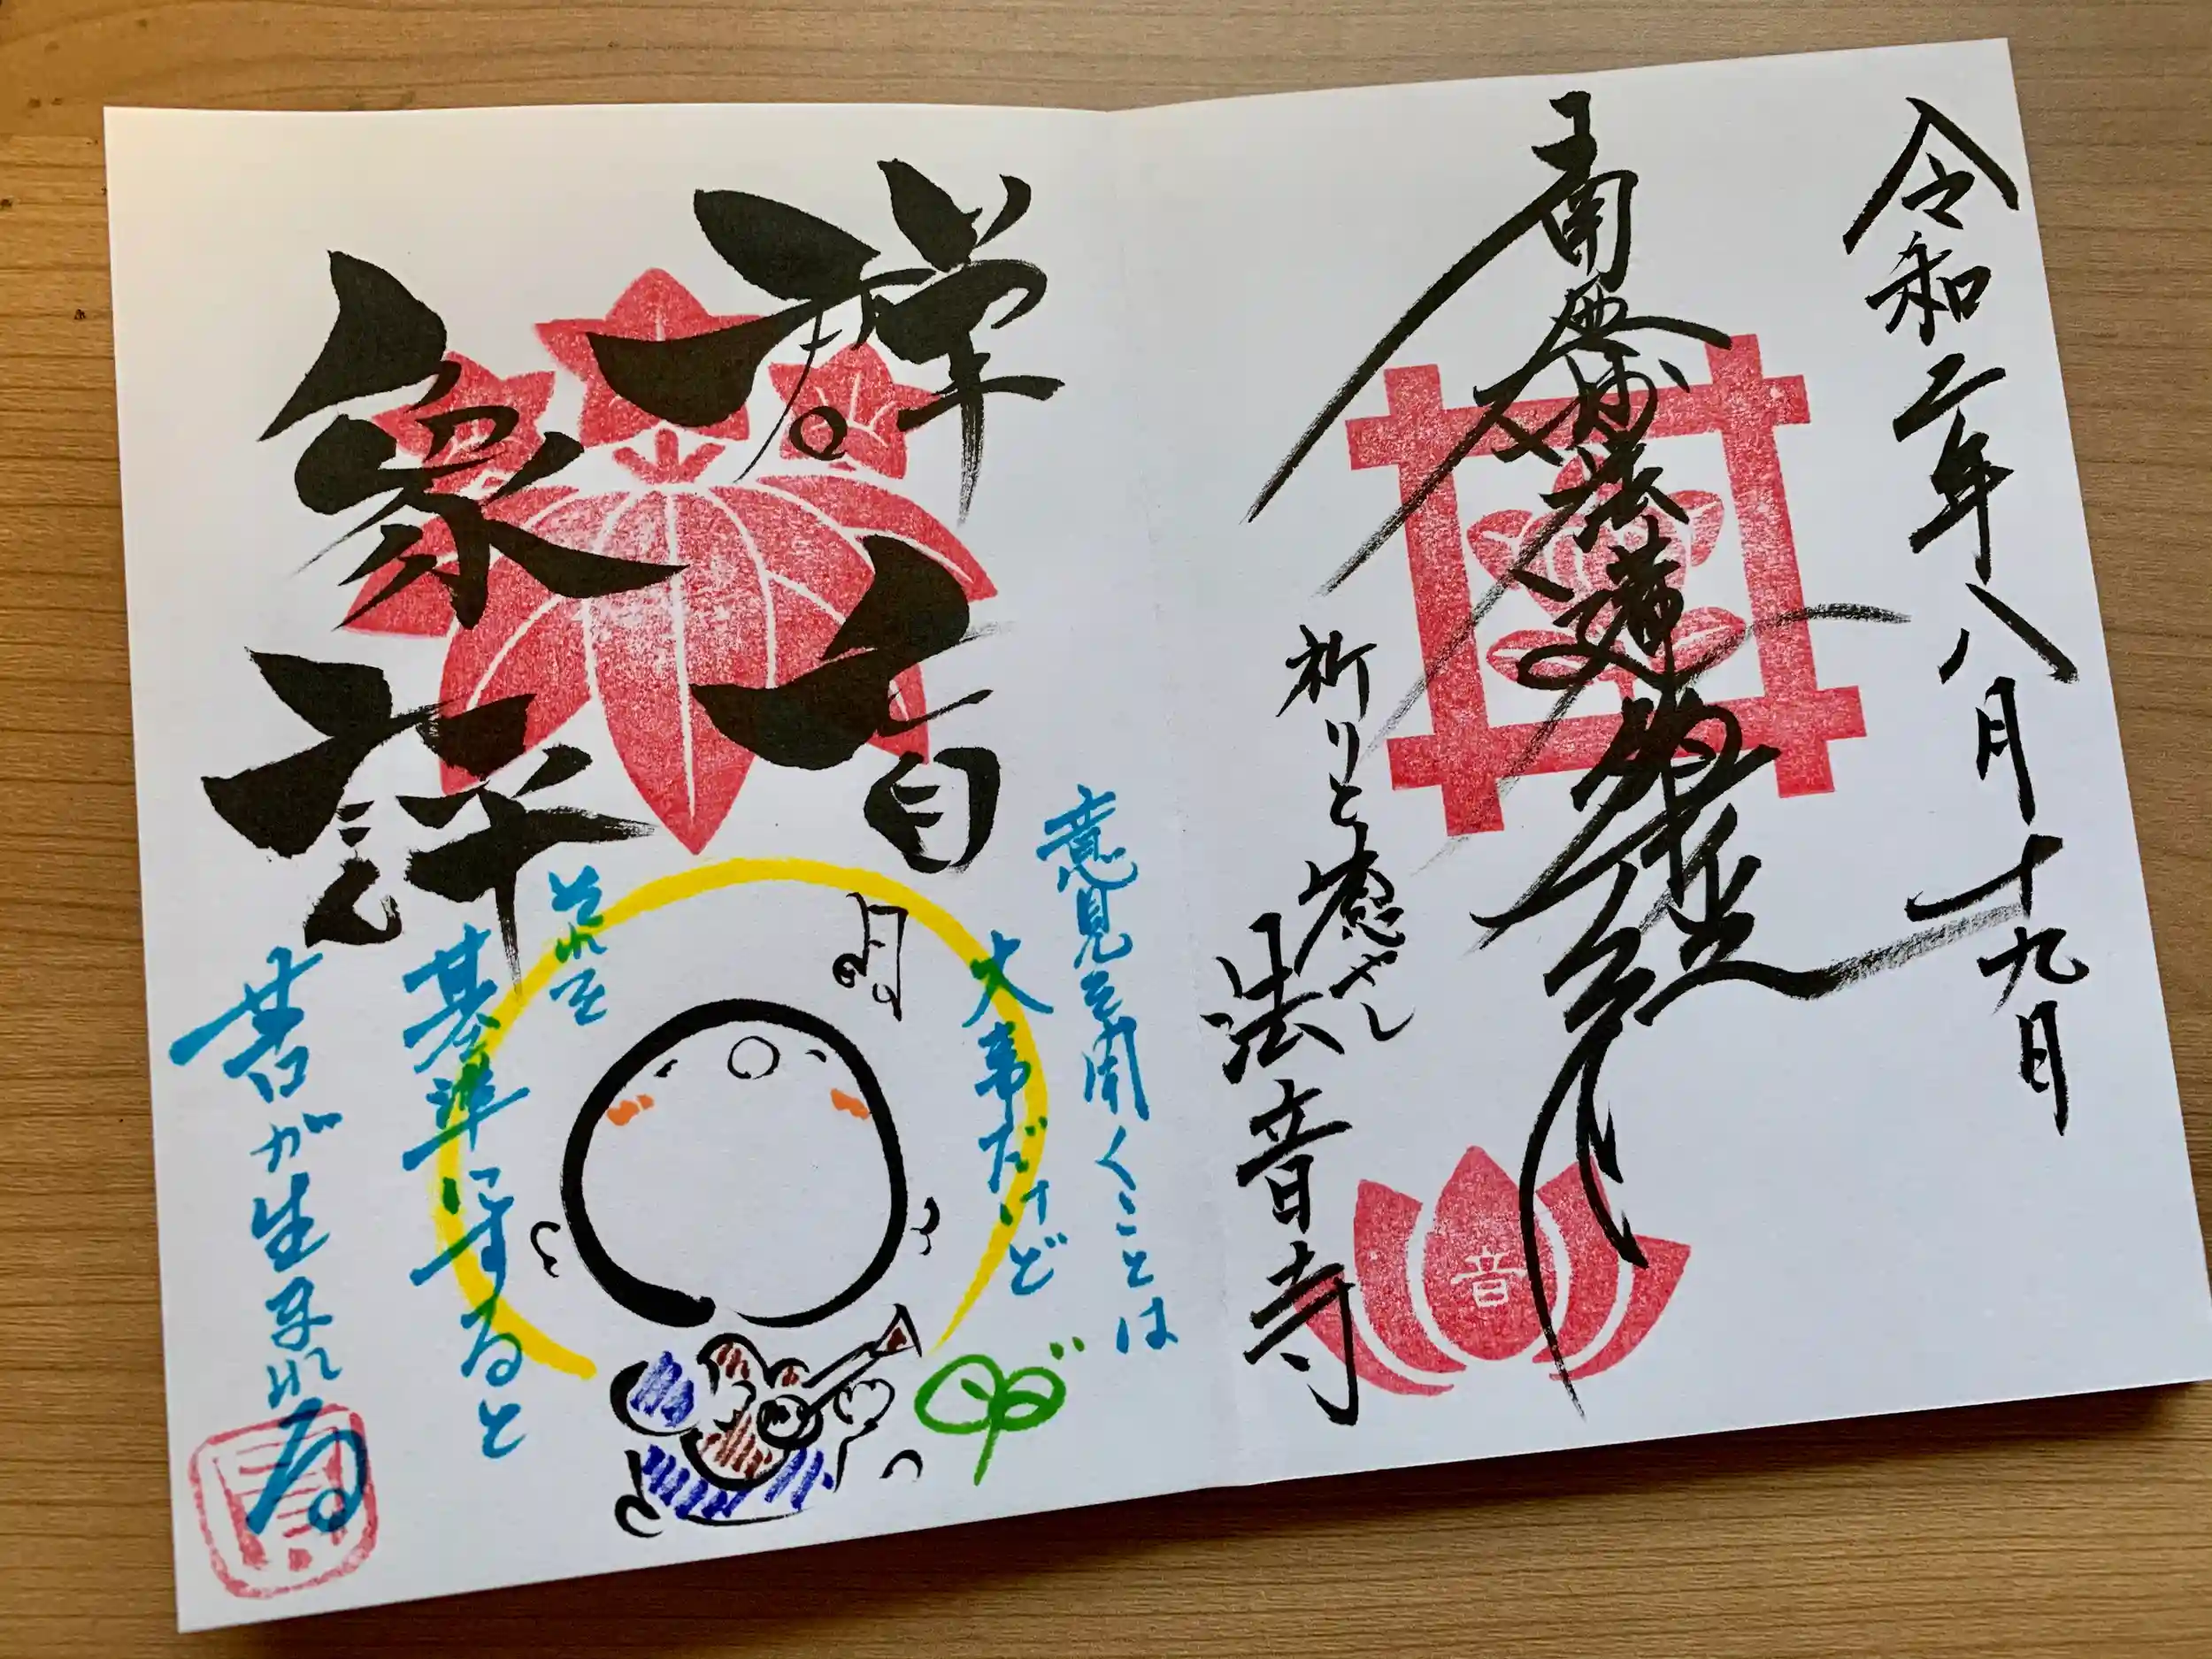 令和二年八月十九日
南無妙法蓮華経
祈りと癒やし
法音寺
音
群盲象評
意見を聞くことは
大事だけど
それを
基準にすると
苦が生まれる